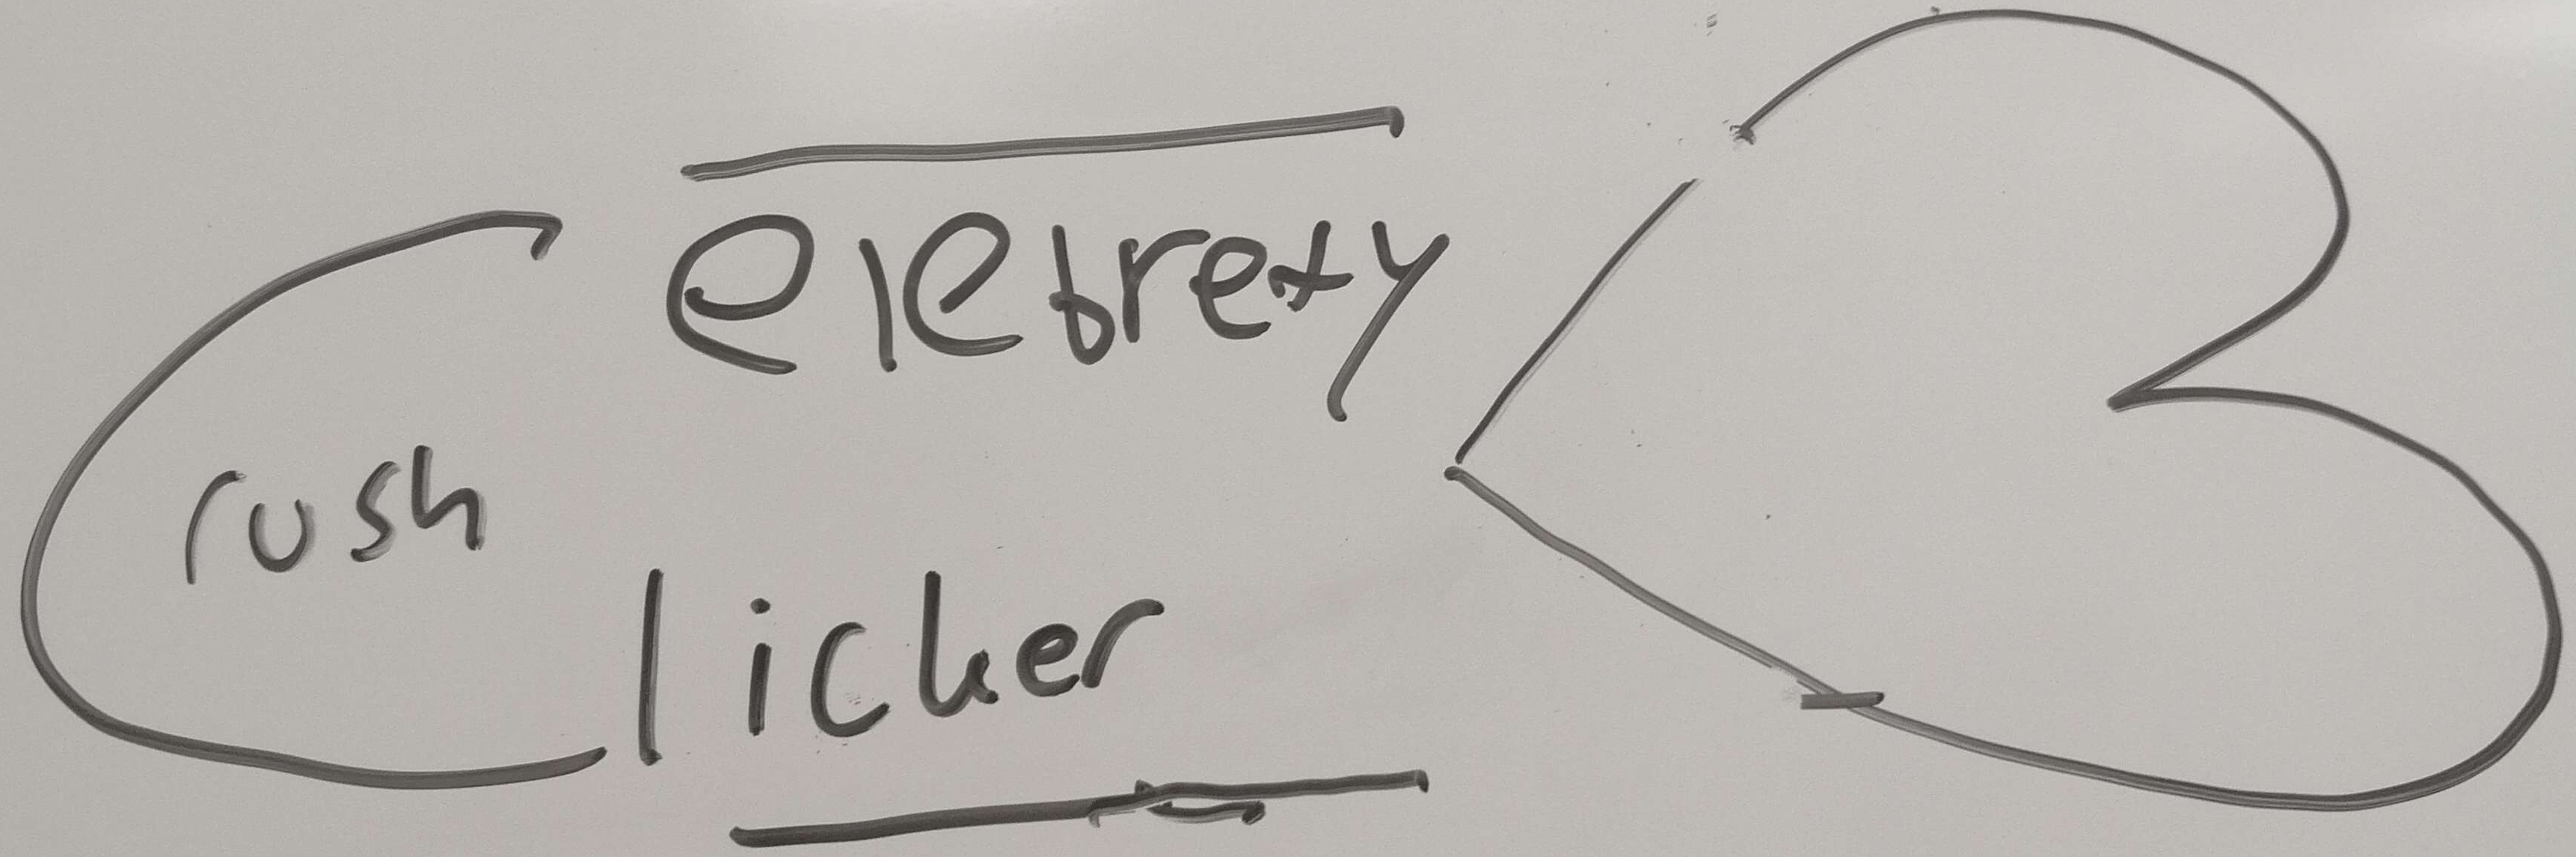 Celebrety
Crush
Clicker